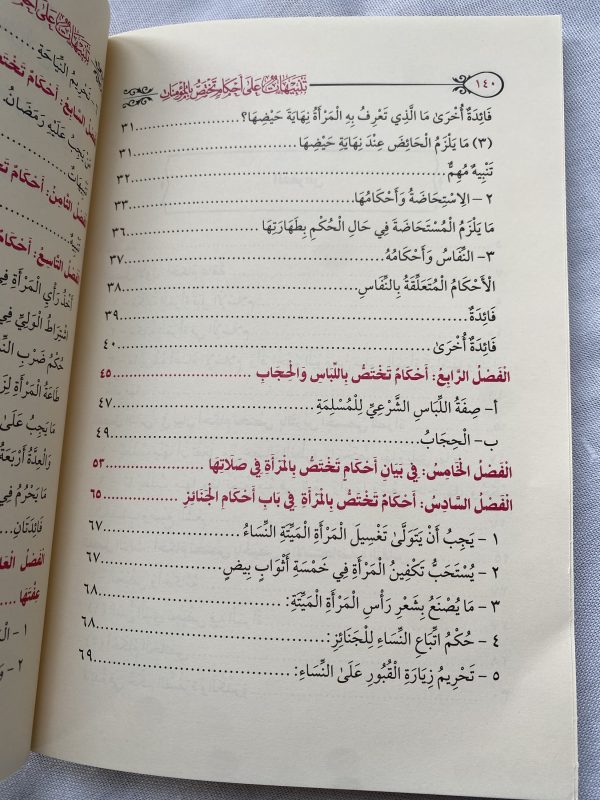 ١٤٠ تَنْبِيهَاتٌ عَلَى أَحْكَامٍ تَخْتَصُّ بِالْمُؤْمِنَاتِ
فَائِدَةٌ أُخْرَىٰ مَا الَّذِي تَعْرِفُ بِهِ الْمَرْأَةُ نِهَايَةَ حَيْضِهَا؟ ٣١
(٣) مَا يَلْزَمُ الْحَائِضَ عِنْدَ نِهَايَةِ حَيْضِهَا ٣١
تَنْبِيهٌ مُهِمٌّ ٣٢
٢ - الِاسْتِحَاضَةُ وَأَحْكَامُهَا ٣٣
مَا يَلْزَمُ الْمُسْتَحَاضَةَ فِي حَالِ الْحُكْمِ بِطَهَارَتِهَا ٣٦
٣- النِّفَاسُ وَأَحْكَامُهُ ٣٧
الْأَحْكَامُ الْمُتَعَلِّقَةُ بِالنِّفَاسِ ٣٨
فَائِدَةٌ ٣٩
فَائِدَةٌ أُخْرَىٰ ٤٠
الْفَصْلُ الرَّابِعُ: أَحْكَامٌ تَخْتَصُّ بِاللِّبَاسِ وَالْحِجَابِ ٤٥
أ- صِفَةُ اللِّبَاسِ الشَّرْعِيِّ لِلْمُسْلِمَةِ ٤٧
ب- الْحِجَابُ ٤٩
الْفَصْلُ الْخَامِسُ: فِي بَيَانِ أَحْكَامٍ تَخْتَصُّ بِالْمَرْأَةِ فِي صَلَاتِهَا ٥٣
الْفَصْلُ السَّادِسُ: أَحْكَامٌ تَخْتَصُّ بِالْمَرْأَةِ فِي بَابِ أَحْكَامِ الْجَنَائِزِ ٦٥
١ - يَجِبُ أَنْ يَتَوَلَّىٰ تَغْسِيلَ الْمَرْأَةِ الْمَيِّتَةِ النِّسَاءُ ٦٧
٢ - يُسْتَحَبُّ تَكْفِينُ الْمَرْأَةِ فِي خَمْسَةِ أَثْوَابٍ بِيضٍ ٦٧
٣ - مَا يُصْنَعُ بِشَعْرِ رَأْسِ الْمَرْأَةِ الْمَيِّتَةِ: ٦٨
٤ - حُكْمُ اتِّبَاعِ النِّسَاءِ لِلْجَنَائِزِ: ٦٨
٥ - تَحْرِيمُ زِيَارَةِ الْقُبُورِ عَلَىٰ النِّسَاءِ: ٦٩
تَنْبِيهَاتٌ عَلَى
- تَحْرِيمُ النِّيَاحَةِ
الْفَصْلُ السَّابِعُ: أَحْكَامٌ
مَنْ يَجِبُ عَلَيْهِ رَمَضَانُ
تَنْبِيهَاتٌ
الْفَصْلُ الثَّامِنُ: أَحْكَامٌ
تَنْبِيهٌ
الْفَصْلُ التَّاسِعُ:
أَخْذُ رَأْيِ الْمَرْأَةِ فِي
اشْتِرَاطُ الْوَلِيِّ فِي
حُكْمُ ضَرْبِ
طَاعَةُ الْمَرْأَةِ
مَا يَجِبُ عَلَىٰ
وَالْعِدَّةُ أَرْبَعَةُ
مَا يَحْرُمُ فِي
فَائِدَتَانِ
الْفَصْلُ
عِفَّتَهَا
١ -
٢ -